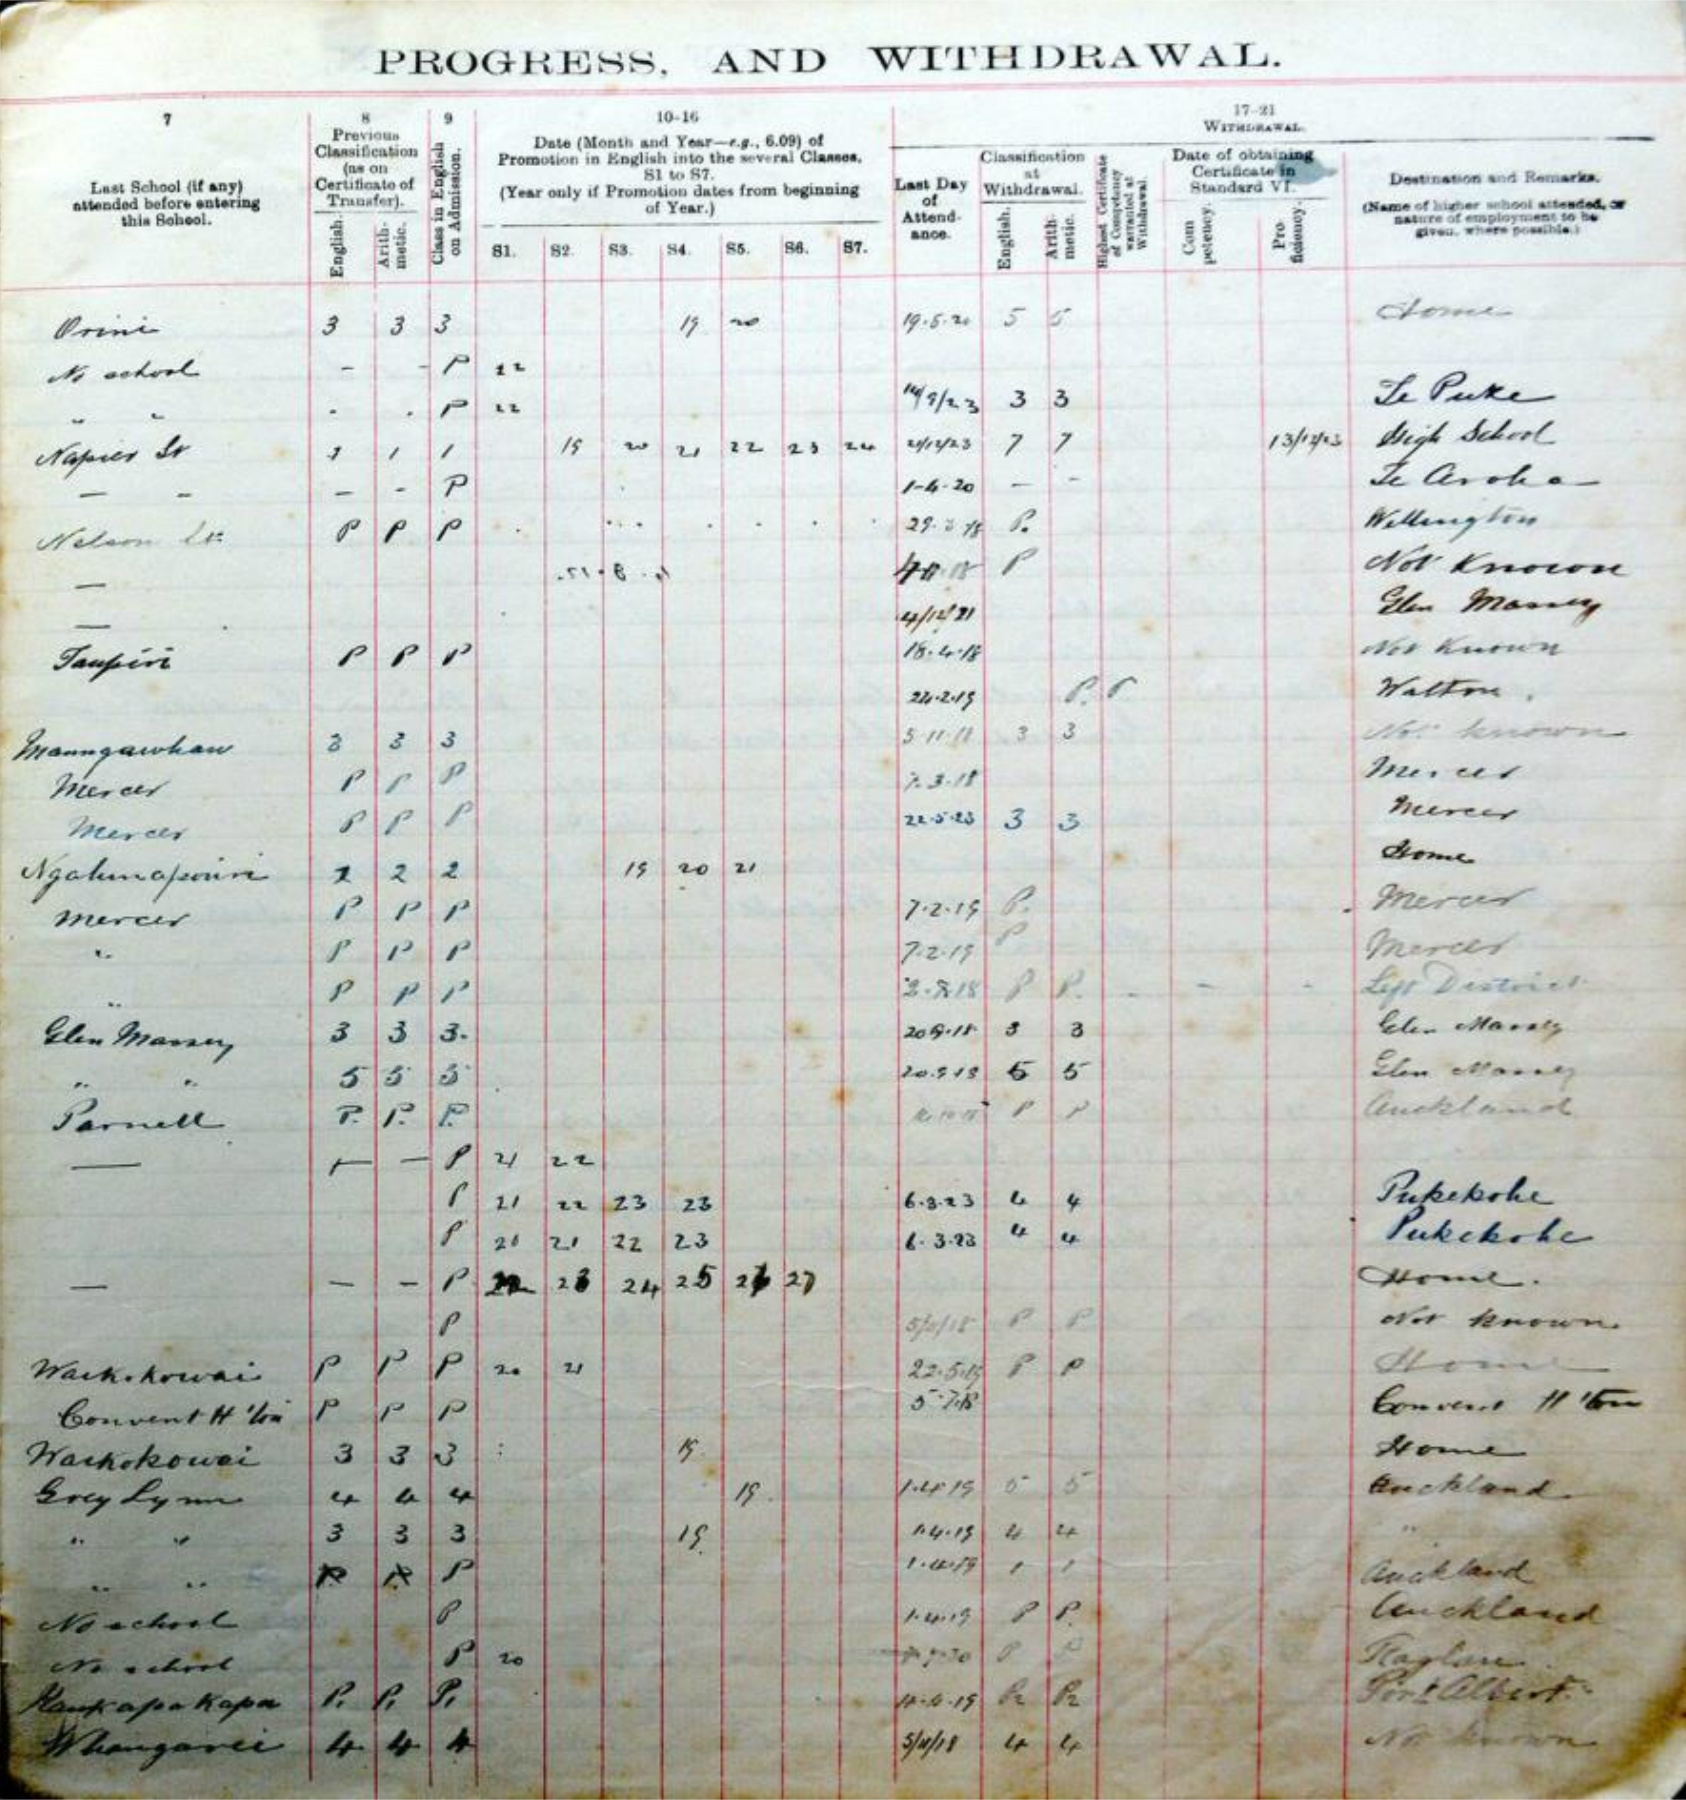 PROGRESS, AND WITHDRAWAL.
7 8 9 10-16 17-21
Last School (if any) attended before entering this School.
Previous Classification (as on Certificate of Transfer).
English. Arithmetic.
Class in English on Admission.
Date (Month and Year—e.g., 6.09) of Promotion in English into the several Classes, S1 to S7.
(Year only if Promotion dates from beginning of Year.)
S1. S2. S3. S4. S5. S6. S7.
WITHDRAWAL.
Last Day of Attendance.
Classification at Withdrawal.
English. Arithmetic.
Highest Certificate of Competency warranted at Withdrawal.
Date of obtaining Certificate in Standard VI.
Competency. Proficiency.
Destination and Remarks.
(Name of higher school attended, or nature of employment to be given, where possible.)
Orini 3 3 3 19 20 19.5.20 5 5 Home
No school - - P 22
" " . . P 22 /9/23 3 3 Te Puke
Napier St 1 1 1 19 20 21 22 23 24 21/12/23 7 7 13/12/23 High School
— — — - P 1-4-20 — - Te Aroha
Nelson St. P P P 29.3.18 P. Wellington
— P Not Known
— 4/12/21 Glen Massey
Taupiri P P P 18.4.18 Not Known
24.2.19 P. P Walton.
3 3 3 5.11.18 3 3 Not known
Mercer P P P 7.3.18 Mercer
Mercer P P P 22.5.23 3 3 Mercer
2 2 2 19 20 21 Home
Mercer P P P 7.2.19 P. Mercer
" P P P 7.2.19 P Mercer
" P P P 18 P P. - - - Left District
Glen Massey 3 3 3. 20.9.18 3 3 Glen Massey
" " 5 5 5 20.9.18 5 5 Glen Massey
Parnell P. P. P. P P Auckland
— — — P 21 22
P 21 22 23 23 6.3.23 4 4 Pukekohe
P 20 21 22 23 6.3.23 4 4 Pukekohe
— — — P 23 24 25 26 27 Home.
P P P Not known
Waikokowai P P P 20 21 22.5.19 P P Home
Convent H'ton P P P 5.7.18 Convent H'ton
Waikokowai 3 3 3 19. Home
Grey Lynn 4 4 4 19. 1.4.19 5 5 Auckland
" " 3 3 3 19. 1.4.19 4 4 "
" " P 1.4.19 1 1 Auckland
No school P 1.4.19 P P. Auckland
No school P 20 P P Raglan
Kaukapakapa P. P. P. 4.19 P2 P2 Port Albert.
Whangarei 4 4 4 5/11/18 4 4 Not known